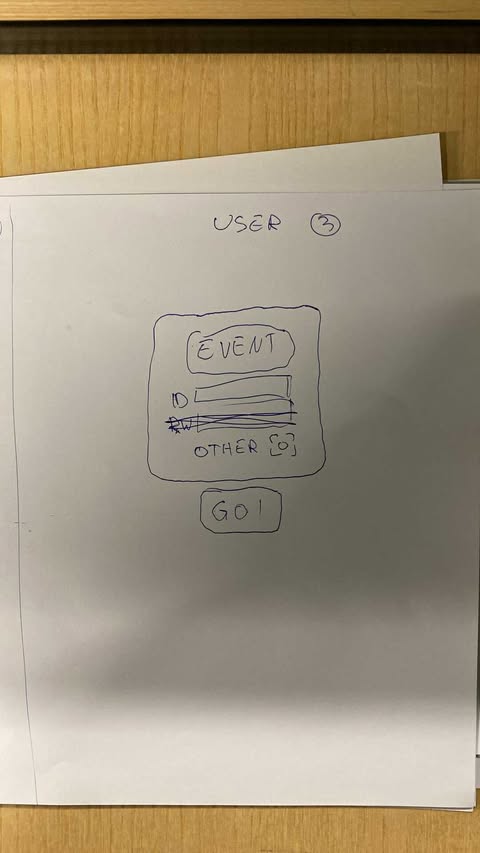 USER 3
EVENT
ID
PW
OTHER [O]
GO!